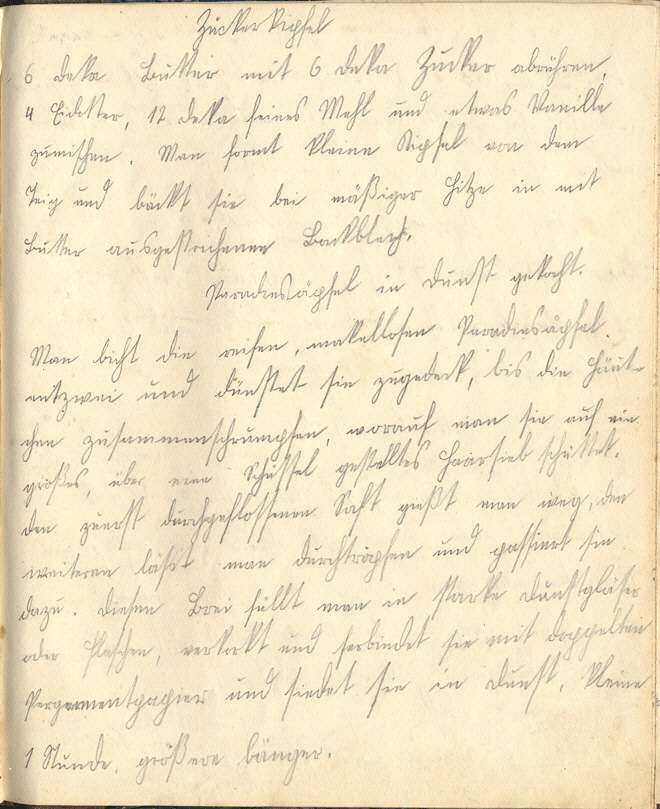 Zuckerkipfel
6 deka Butter mit 6 deka Zucker abrühren,
4 Eidotter, 12 deka feines Mehl und etwas Vanille
zumischen. Man formt kleine Kipfel von dem
Teig und bäckt sie bei mäßiger Hitze in mit
Butter ausgestrichenen Backblech.
Paradiesäpfel in Dunst gekocht.
Man bicht die reifen, makellosen Paradiesäpfel
entzwei und dünstet sie zugedeck, bis die Häut-
chen zusammenschrumpfen, worauf man sie auf ein
großes, über eine Schüssel gestelltes Haarsieb schüttet.
den zuerst durchgeflossenen Saft gießt man weg, den
weiteren läßt man durchtropfen und passiert sie
dazu. Diesen Brei füllt man in starke Dunstgläser
oder Flaschen, verkorkt und ferbindet sie mit doppelten
Pergamentpapier und siedet sie in Dunst, kleine
1 Stunde, größere länger.